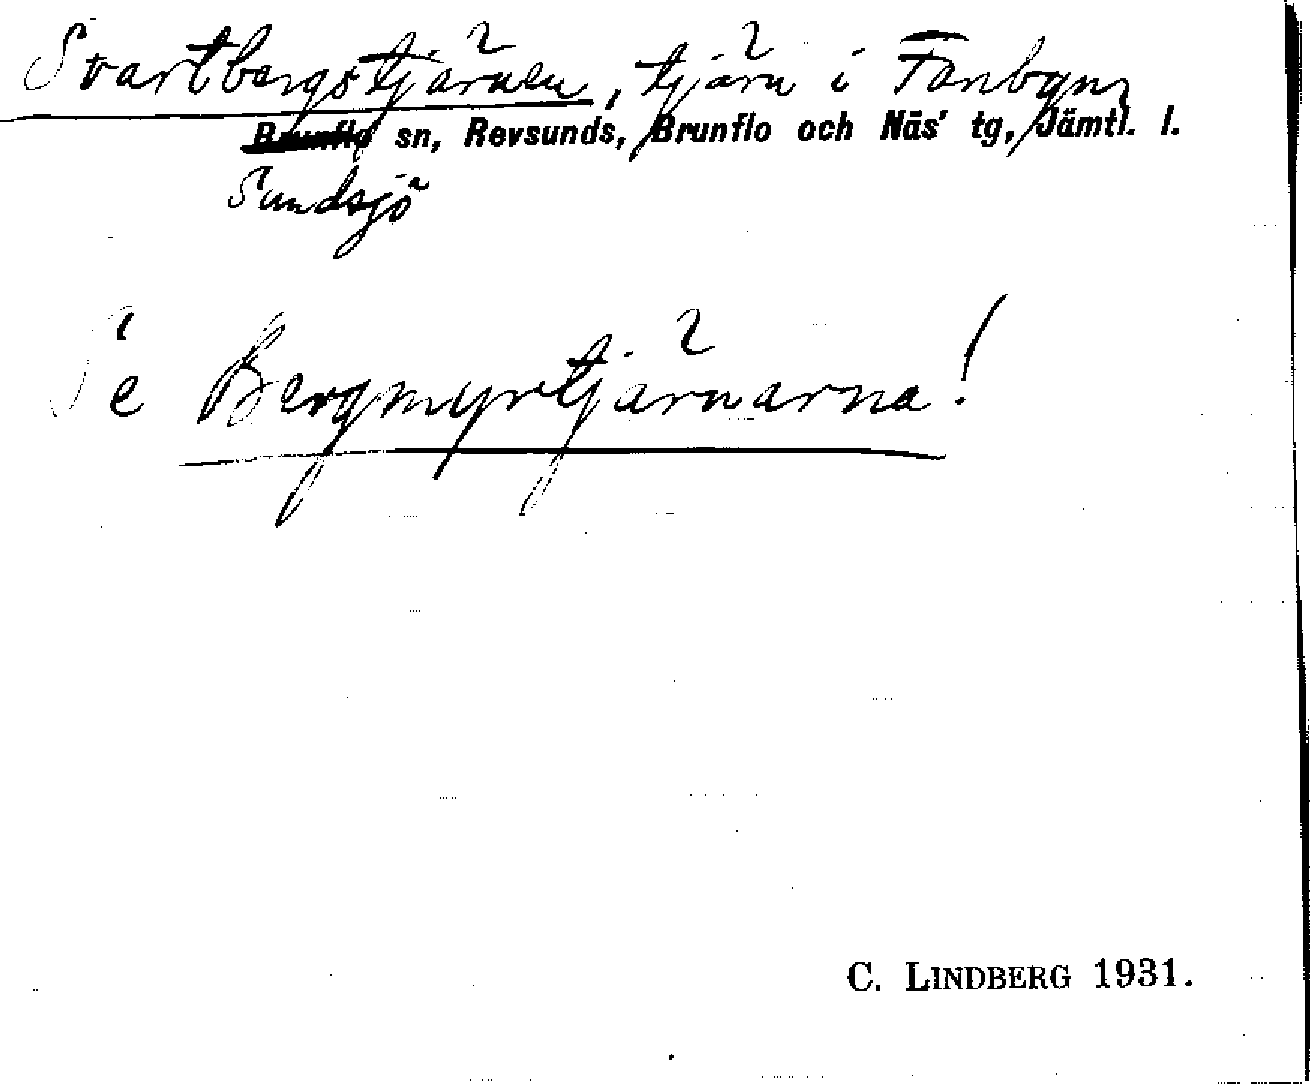 Svartbergstjärnen, tjärn i Fanbyn,
Brunflo sn, Revsunds, Brunflo och Näs' tg, Jämtl. l.
Sundsjö
Se Bergmyrtjärnarna!
C. LINDBERG 1931.